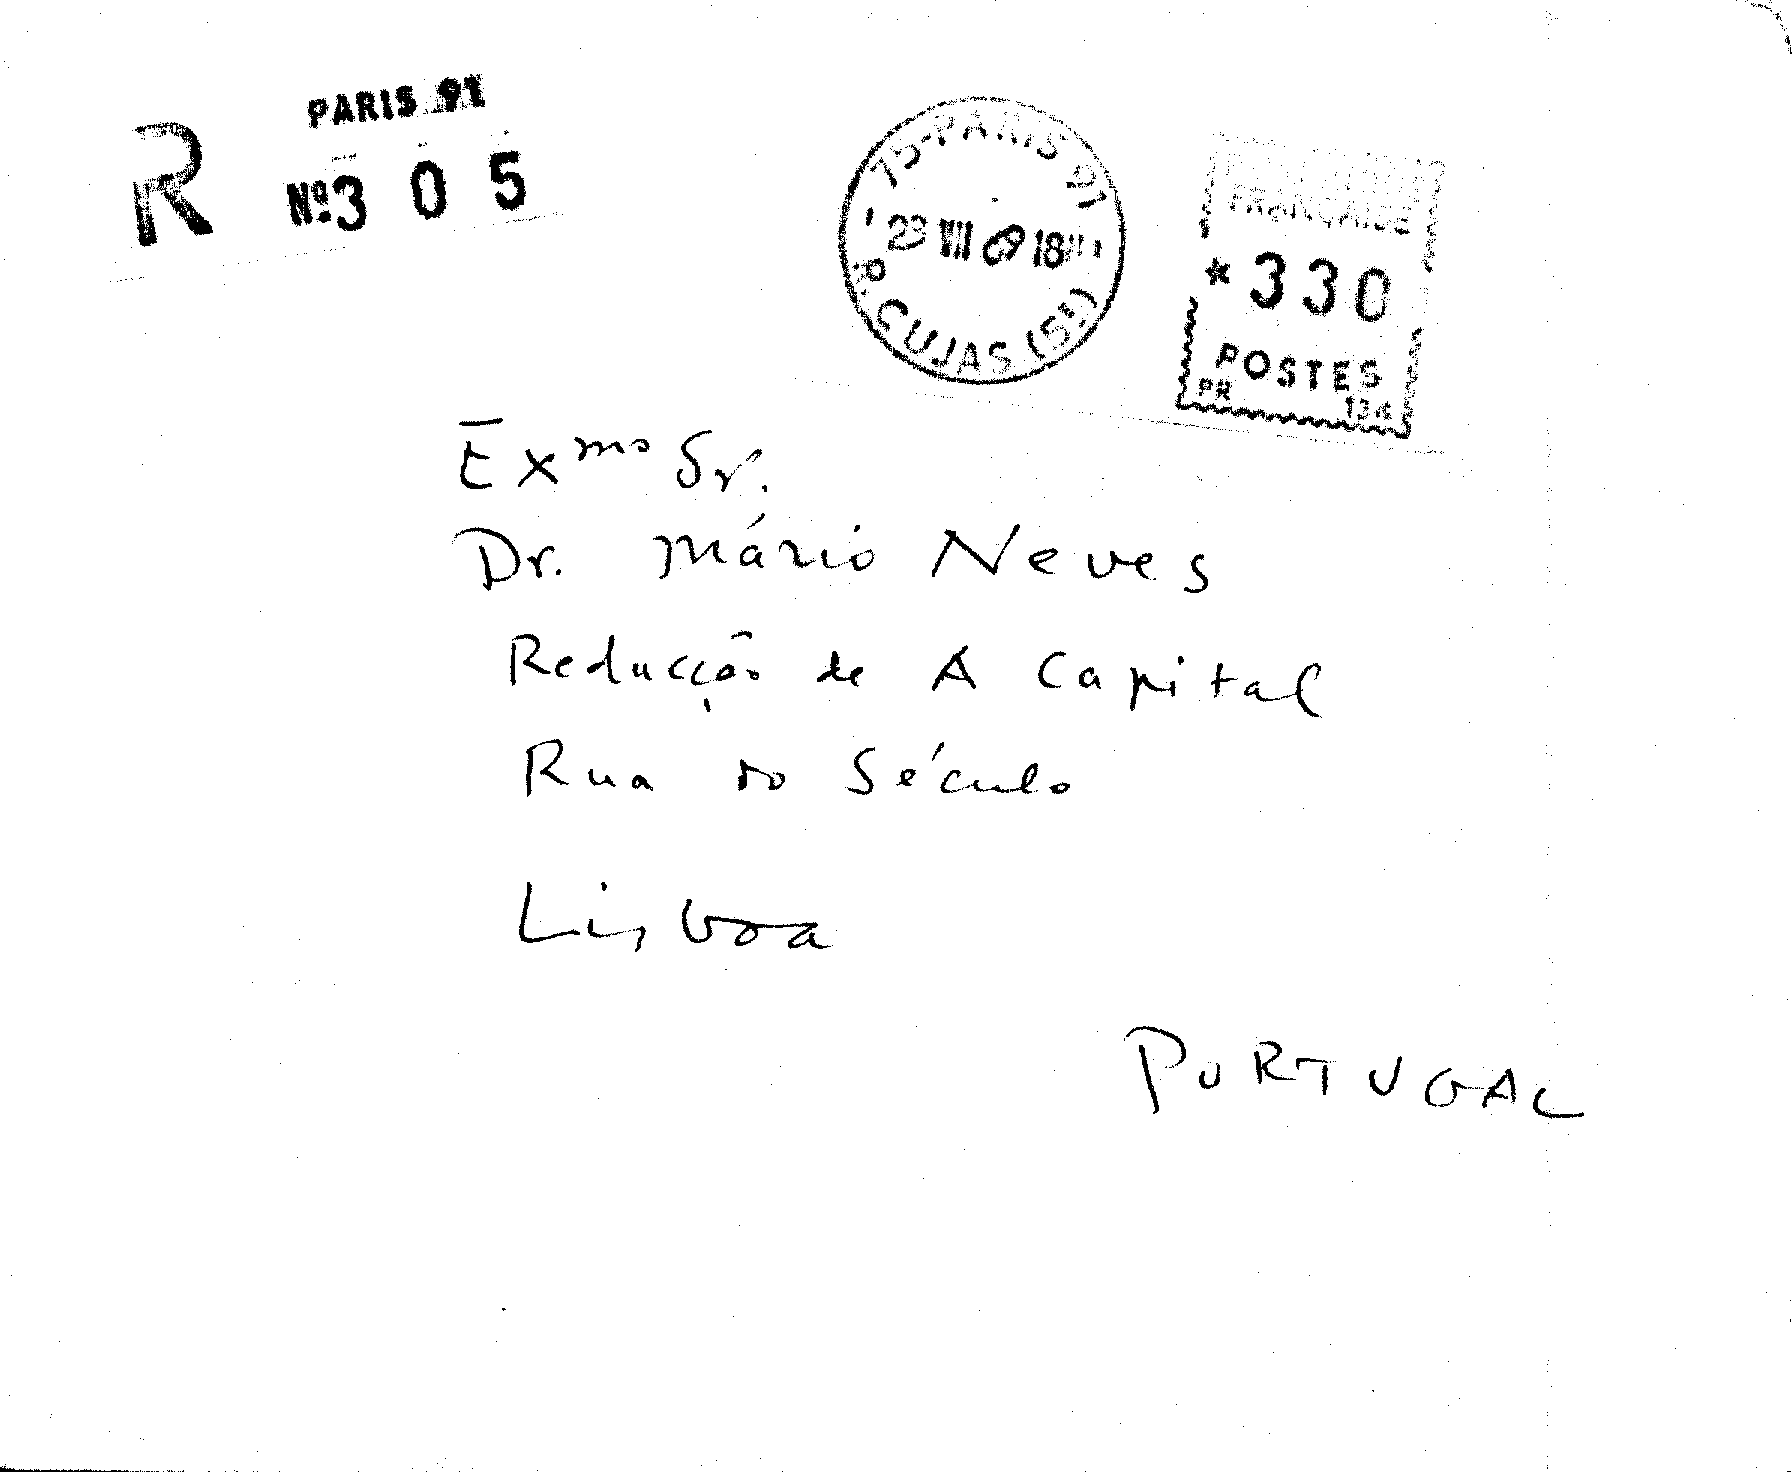 PARIS 91
R Nº 305
75-PARIS 91
23 VII 69 18H
R. CUJAS (5E)
FRANÇAISE
*330
POSTES
PR
Exmo Sr.
Dr. Mário Neves
Reducção de A Capital
Rua do Século
Lisboa
PORTUGAL